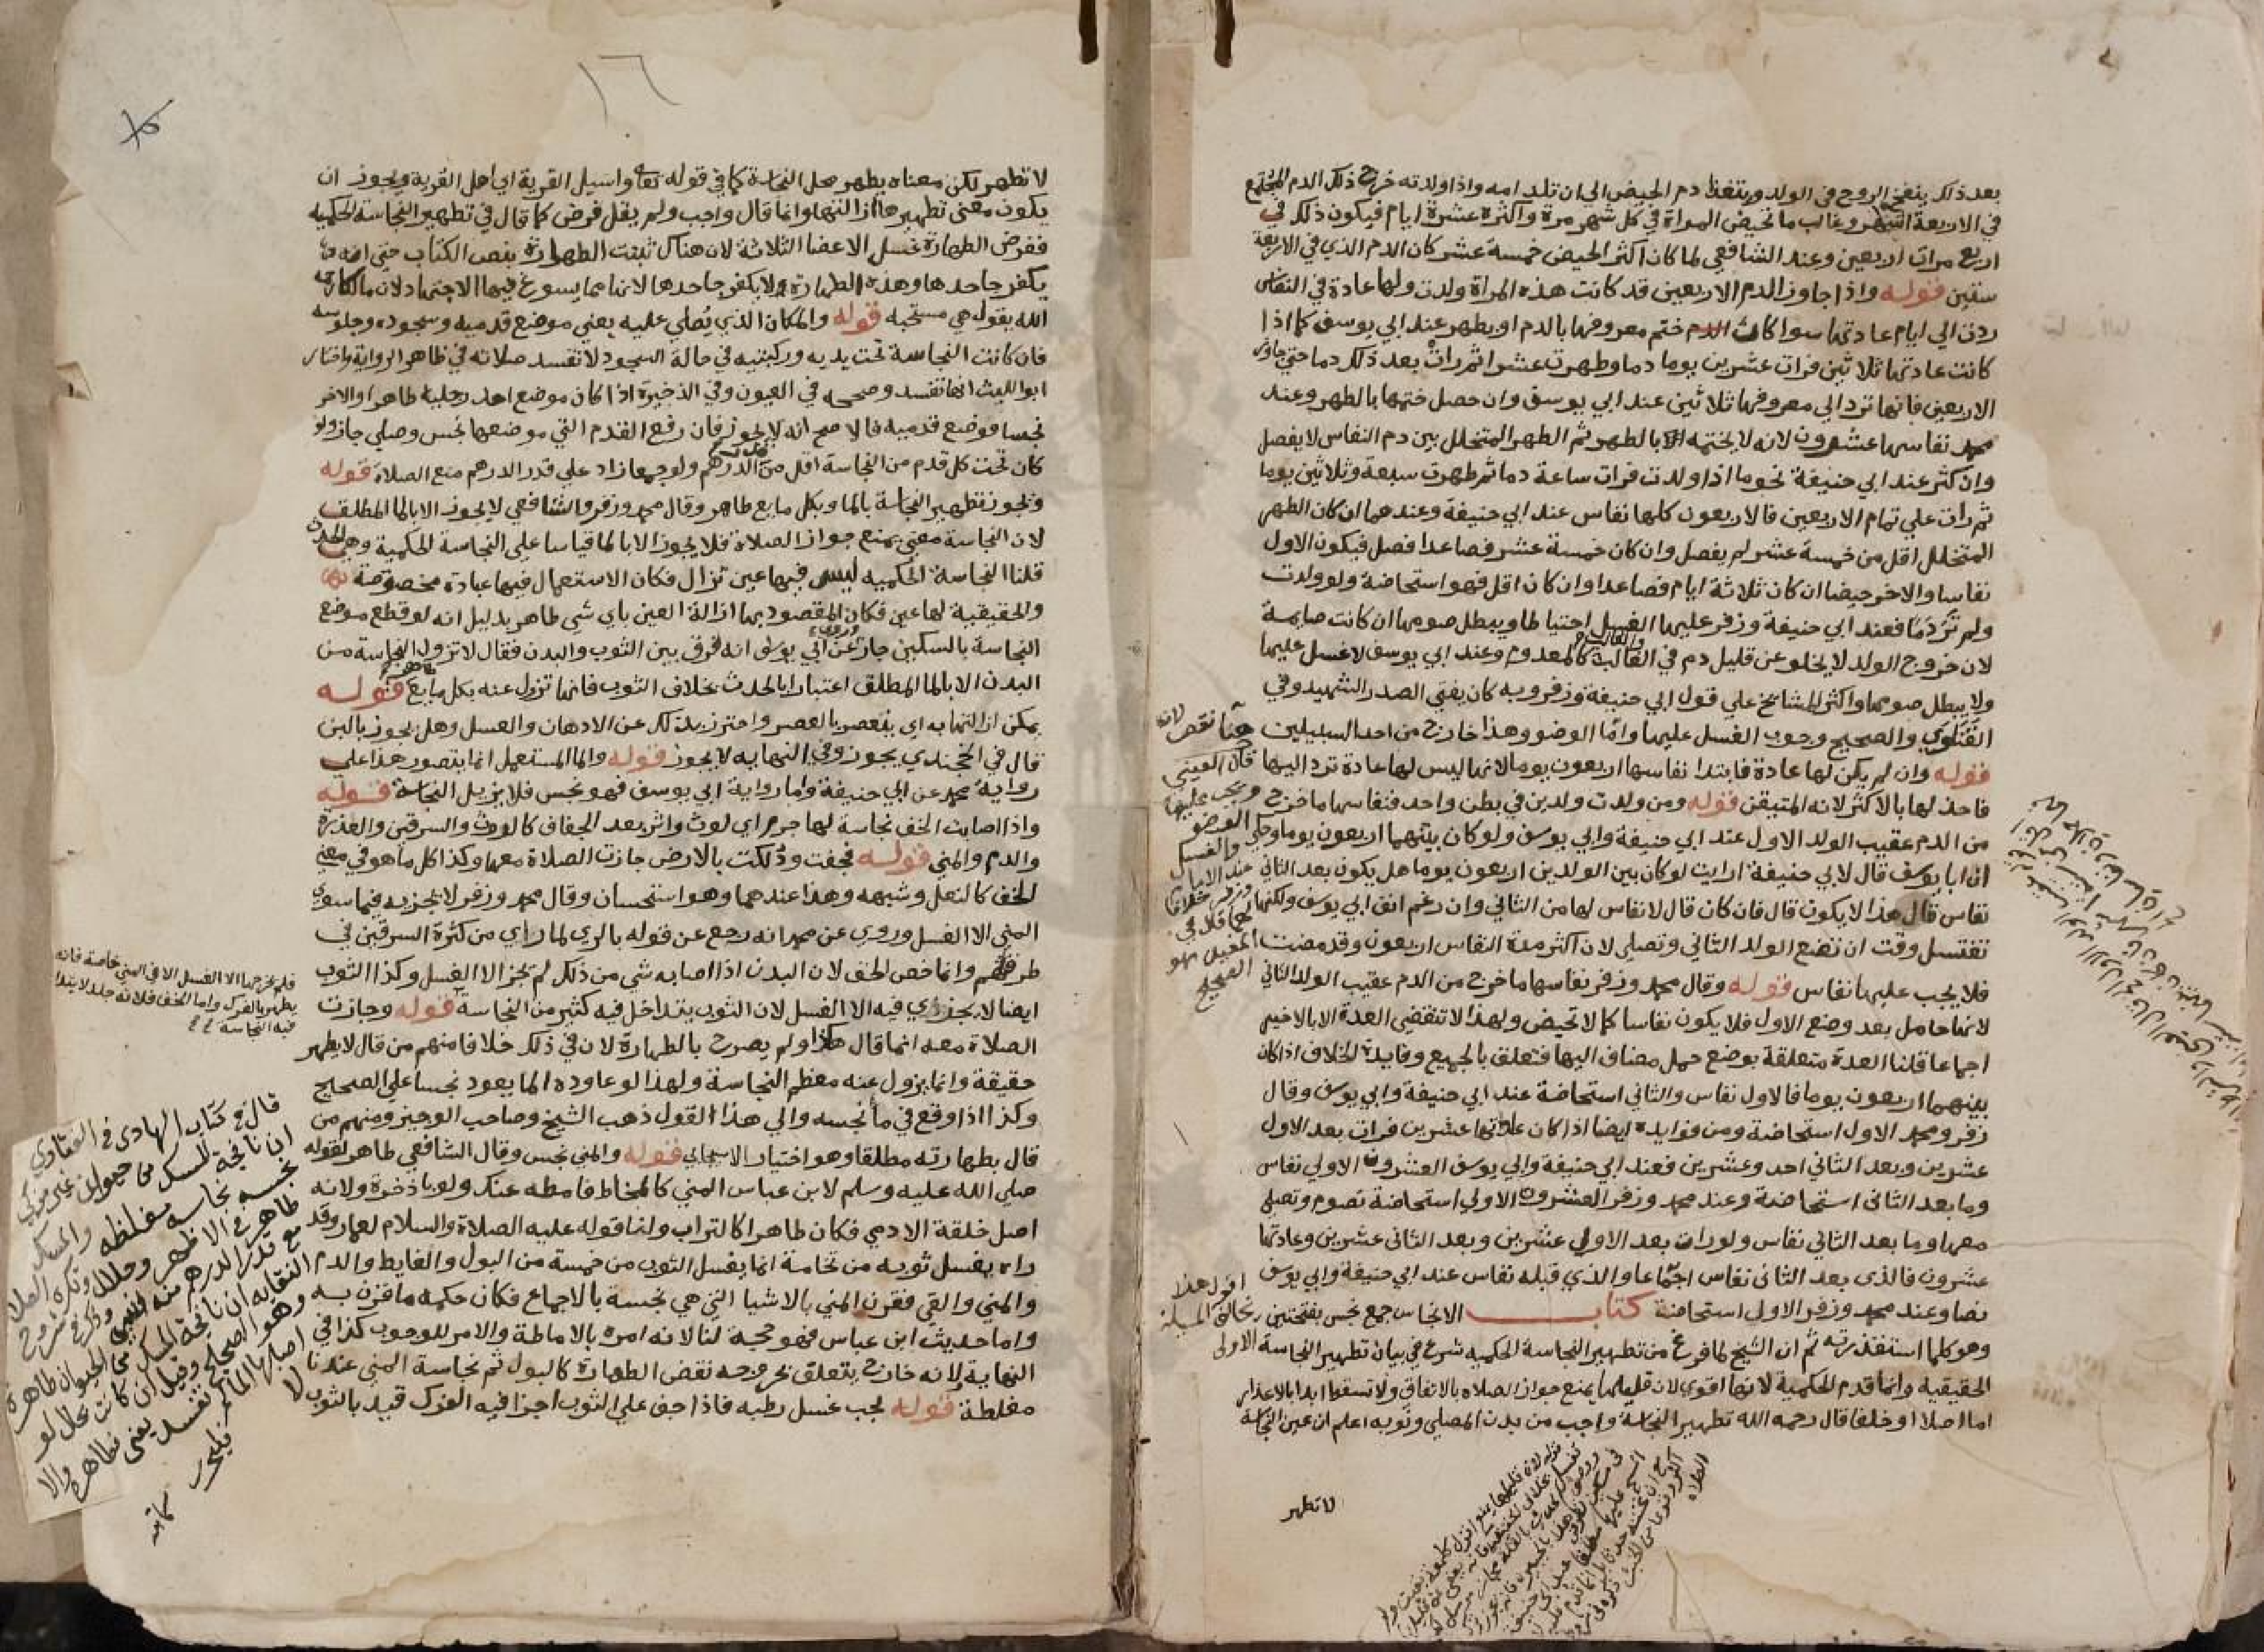 بعد ذلك ينفخ الروح في الولد ويتغذا دم الحيض الي ان تلد امه واذا ولدته خرج ذلك الدم المجتمع
في الاربعة اشهر وغالب ما تحيض المراة في كل شهر مرة واكثره عشرة ايام فيكون ذلك في
اربع مرات اربعين وعند الشافعي لما كان اكثر الحيض خمسة عشر كان الدم الذي في الاربعة
ستين قوله واذا جاوز الدم الاربعين قد كانت هذه المراة ولدت ولها عادة في النفاس
ردت الي ايام عادتها سوا كان الدم ختم معروفها بالدم او بطهر عند ابي يوسف كما اذا
كانت عادتها ثلاثين فرات عشرين يوما دما وطهرت عشرا ثم رات بعد ذلك دما حتي جاوز
الاربعين فانها ترد الي معروفها ثلاثين عند ابي يوسف وان حصل ختمها بالطهر وعند
محمد نفاسها عشرون لانه لا يختمه بالطهر ثم الطهر المتخلل بين دم النفاس لا يفصل
وان كثر عند ابي حنيفة نحو ما اذا ولدت فرات ساعة دما ثم طهرت سبعة وثلاثين يوما
ثم رات علي تمام الاربعين فالاربعون كلها نفاس عند ابي حنيفة وعندهما ان كان الطهر
المتخلل اقل من خمسة عشر لم يفصل وان كان خمسة عشر فصاعدا فصل فيكون الاول
نفاسا والاخر حيضا ان كان ثلاثة ايام فصاعدا وان كان اقل فهو استحاضة ولو ولدت
ولم تر دما فعند ابي حنيفة وزفر عليها الغسل احتياطا ويبطل صومها ان كانت صايمة
لان خروج الولد لا يخلو عن قليل دم في الغالب والغالب كالمعدوم وعند ابي يوسف لا غسل عليها
ولا يبطل صومها واكثر المشايخ علي قول ابي حنيفة وزفر وبه كان يفتي الصدر الشهيد وفي
الفتاوي والصحيح وجوب الغسل عليها واما الوضو وهذا خارج من احد السبيلين
قوله وان لم يكن لها عادة فابتدا نفاسها اربعون يوما لانها ليس لها عادة ترد اليها
فاخذ لها بالاكثر لانه المتيقن قوله ومن ولدت ولدين في بطن واحد فنفاسها ما خرج
من الدم عقيب الولد الاول عند ابي حنيفة وابي يوسف ولو كان بينهما اربعون يوما وحكي
ان ابا يوسف قال لابي حنيفة ارايت لو كان بين الولدين اربعون يوما هل يكون بعد الثاني
نفاس قال هذا لا يكون قال فان كان قال لا نفاس لها من الثاني وان رغم انف ابي يوسف ولكنها
تغتسل وقت ان تضع الولد الثاني وتصلي لان اكثر مدة النفاس اربعون وقد مضت
فلا يجب عليها نفاس قوله وقال محمد وزفر نفاسها ما خرج من الدم عقيب الولد الثاني
لانها حامل بعد وضع الاول فلا يكون نفاسا كما لا تحيض ولهذا لا تنقضي العدة الا بالاخير
اجماعا قلنا العدة متعلقة بوضع حمل مضاف اليها فتعلق بالجميع وفايدة الخلاف اذا كان
بينهما اربعون يوما فالاول نفاس والثاني استحاضة عند ابي حنيفة وابي يوسف وقال
زفر ومحمد الاول استحاضة ومن فوايده ايضا اذا كان عادتها عشرين فرات بعد الاول
عشرين وبعد الثاني احد وعشرين فعند ابي حنيفة وابي يوسف العشرون الاولي نفاس
وما بعد الثاني استحاضة وعند محمد وزفر العشرون الاولي استحاضة تصوم وتصلي
معها وما بعد الثاني نفاس ولو رات بعد الاول عشرين وبعد الثاني عشرين وعادتها
عشرون فالذي بعد الثاني نفاس اجماعا والذي قبله نفاس عند ابي حنيفة وابي يوسف
نصا وعند محمد وزفر الاول استحاضة كتاب الانجاس جمع نجس بفتحتين
وهو كلما استقذرته ثم ان الشيخ لما فرغ من تطهير النجاسة الحكمية شرع في بيان تطهير النجاسة
الحقيقية وانما قدم الحكمية لانها اقوي لان قليلها يمنع جواز الصلاه بالاتفاق ولا تسقط ابدا بالاعذار
اما اصلا او خلفا قال رحمه الله تطهير النجاسة واجب من بدن المصلي وثوبه اعلم ان عين النجاسة
لا تطهر
هنا نقص
قال العيني
ويجب عليها
الوضو
الصحيح
اقول هذا
١٦
لا تطهر لكن معناه يطهر محل النجاسة كما في قوله تعالي واسيل القرية اي اهل القرية ويجوز ان
يكون معني تطهيرها ازالتها وانما قال واجب ولم يقل فرض كما قال في تطهير النجاسة الحكمية
ففرض الطهارة غسل الاعضا الثلاثة لان هناك ثبتت الطهارة بنص الكتاب حتي انه
يكفر جاحدها وهذه الطهارة لا يكفر جاحدها لانها مما يسوغ فيها الاجتهاد لان مالكا رحمه
الله يقول هي مستحبه قوله والمكان الذي يصلي عليه يعني موضع قدميه وسجوده وجلوسه
فان كانت النجاسة تحت يديه وركبتيه في حالة السجود لا تفسد صلاته في ظاهر الرواية واختار
ابو الليث انها تفسد وصححه في العيون وفي الذخيرة اذا كان موضع احد رجليه طاهرا والاخر
نجسا فوضع قدميه فالاصح انه لا يجوز فان رفع القدم التي موضعها نجس وصلي جاز ولو
كان تحت كل قدم من النجاسة اقل من قدر الدرهم ولو جمعا زاد علي قدر الدرهم منع الصلاة قوله
وتجوز تطهير النجاسة بالما وبكل مايع طاهر وقال محمد وزفر والشافعي لا يجوز الا بالما المطلق
لان النجاسة معني يمنع جواز الصلاة فلا يجوز الا بالما قياسا علي النجاسة الحكمية وهي الحدث
قلنا النجاسة الحكمية ليس فيها عين تزال فكان الاستعمال فيها عبادة مخصوصة
والحقيقية لها عين فكان المقصود بها ازالة العين باي شي طاهر بدليل انه لو قطع موضع
النجاسة بالسكين جاز وروي عن ابي يوسف انه فرق بين الثوب والبدن فقال لا تزول النجاسة من
البدن الا بالما المطلق اعتبارا بالحدث بخلاف الثوب فانها تزول عنه بكل مايع طاهر قوله
يمكن ازالتها به اي ينعصر بالعصر واحترز بذلك عن الادهان والعسل وهل يجوز باللبن
قال في الخجندي يجوز وفي النهايه لا يجوز قوله والما المستعمل انما يتصور هذا علي
رواية محمد عن ابي حنيفة واما رواية ابي يوسف فهو نجس فلا يزيل النجاسة قوله
واذا اصابت الخف نجاسة لها جرم اي لوث واثر بعد الجفاف كالروث والسرقين والعذرة
والدم والمني قوله فجفت ودلكت بالارض جازت الصلاة معها وكذا كل ما هو في معني
الخف كالنعل وشبهه وهذا عندهما وهو استحسان وقال محمد وزفر لا يجزيه فيما سوي
المني الا الغسل وروي عن محمد انه رجع عن قوله بالري لما راي من كثرة السرقين في
طرقهم وانما خص الخف لان البدن اذا اصابه شي من ذلك لم تجز الا الغسل وكذا الثوب
ايضا لا يجزي فيه الا الغسل لان الثوب يتداخل فيه كثير من النجاسة قوله وجازت
الصلاة معه انما قال هكذا ولم يصرح بالطهارة لان في ذلك خلافا منهم من قال لا يطهر
حقيقة وانما يزول عنه معظم النجاسة ولهذا لو عاوده الما يعود نجسا علي الصحيح
وكذا اذا وقع في ما نجسه والي هذا القول ذهب الشيخ وصاحب الوجيز ومنهم من
قال بطهارته مطلقا وهو اختيار الاسبيجابي قوله والمني نجس وقال الشافعي طاهر لقوله
صلي الله عليه وسلم لابن عباس المني كالمخاط فامطه عنك ولو باذخرة ولانه
اصل خلقة الادمي فكان طاهرا كالتراب ولنا قوله عليه الصلاة والسلام لعمار وقد
راه يغسل ثوبه من نخامة انما يغسل الثوب من خمسة من البول والغايط والدم
والمني والقي فقرن المني بالاشيا التي هي نجسة بالاجماع فكان حكمه ما قرن به
واما حديث ابن عباس فهو حجة لنا لانه امره بالاماطة والامر للوجوب كذا في
النهاية ولانه خارج يتعلق بخروجه نقض الطهارة كالبول ثم نجاسة المني عندنا
مغلظة قوله يجب غسل رطبه فاذا جف علي الثوب اجزا فيه الفرك قيد بالثوب
فلم يجز فيها الا الغسل الا في المني خاصة فانه
يطهر بالفرك واما الخف فلانه جلد لا يتداخل
فيه النجاسة
قال في كتاب الهادي في الفتاوي